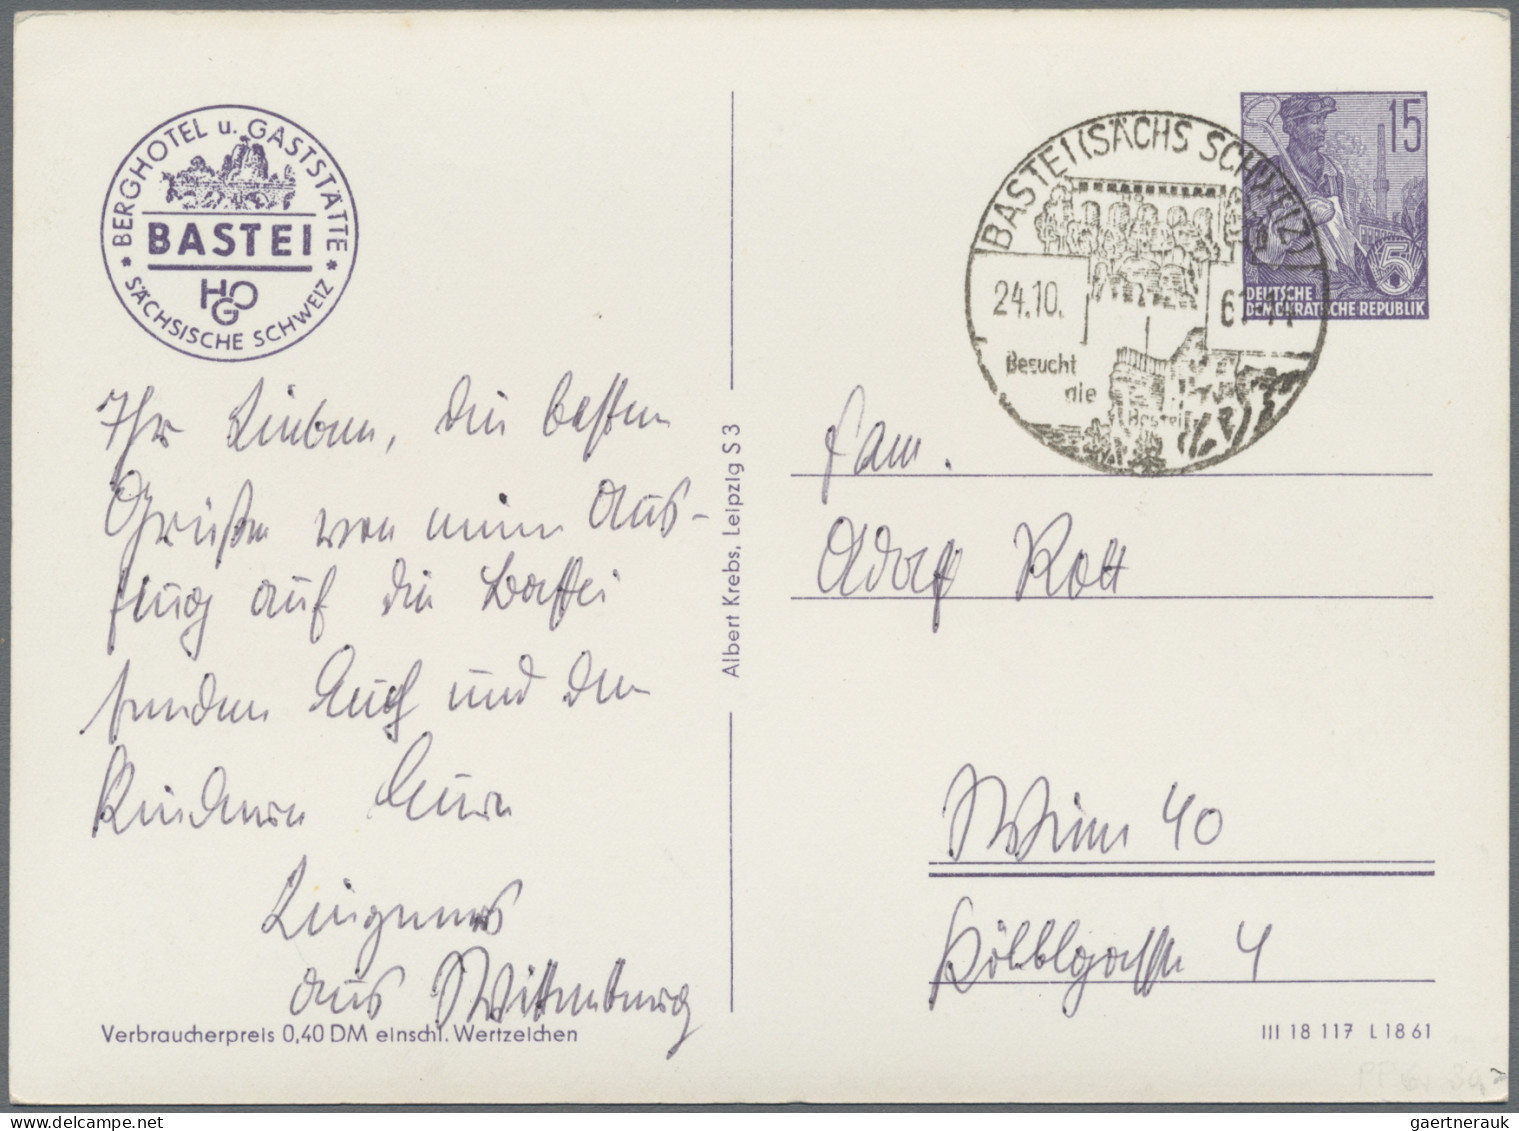 BERGHOTEL u. GASTSTÄTTE
BASTEI
HOG
* SÄCHSISCHE SCHWEIZ *
Ihr Lieben, die besten
Grüße von einem Aus-
flug auf die Bastei
senden Euch und den
Kindern Eure
aus Wittenburg
Verbraucherpreis 0,40 DM einschl. Wertzeichen
Albert Krebs, Leipzig S 3
BASTEI (SÄCHS SCHWEIZ)
24.10. 61
Besucht
die
Bastei
15
5
DEUTSCHE
DEMOKRATISCHE REPUBLIK
Fam.
Adolf Rott
Wien 40
4
III 18 117 L 18 61
PP 6, 30,-
gaertnerauk